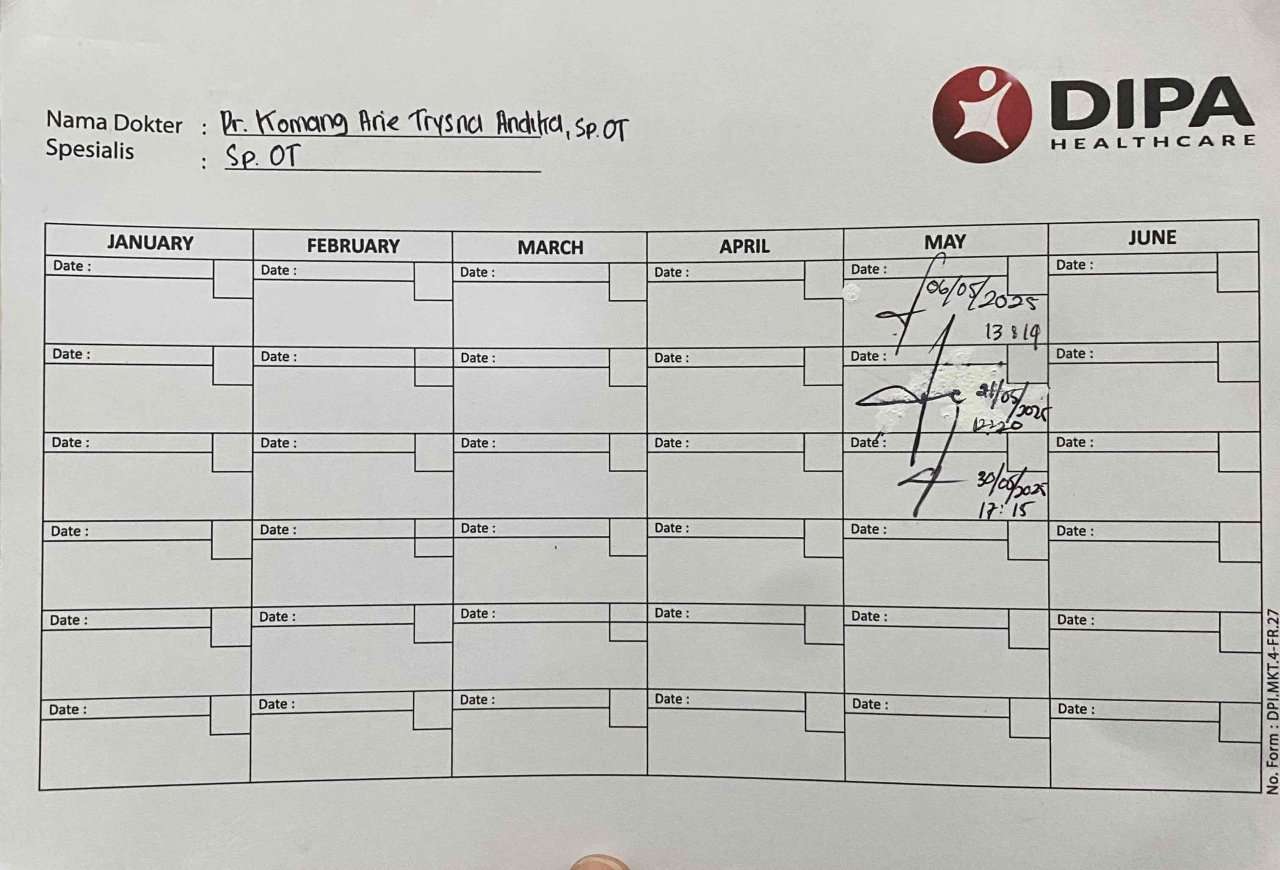 DIPA
HEALTHCARE
Nama Dokter : Dr. Komang Arie Trysna Andika, Sp.OT
Spesialis : Sp. OT
JANUARY FEBRUARY MARCH APRIL MAY JUNE
Date : Date : Date : Date : Date : Date :
06/05/2025
13:19
Date : Date : Date : Date : Date : Date :
21/05/2025
12:20
Date : Date : Date : Date : Date : Date :
30/05/2025
17:15
Date : Date : Date : Date : Date : Date :
Date : Date : Date : Date : Date : Date :
Date : Date : Date : Date : Date : Date :
No. Form : DPI.MKT.4-FR.27